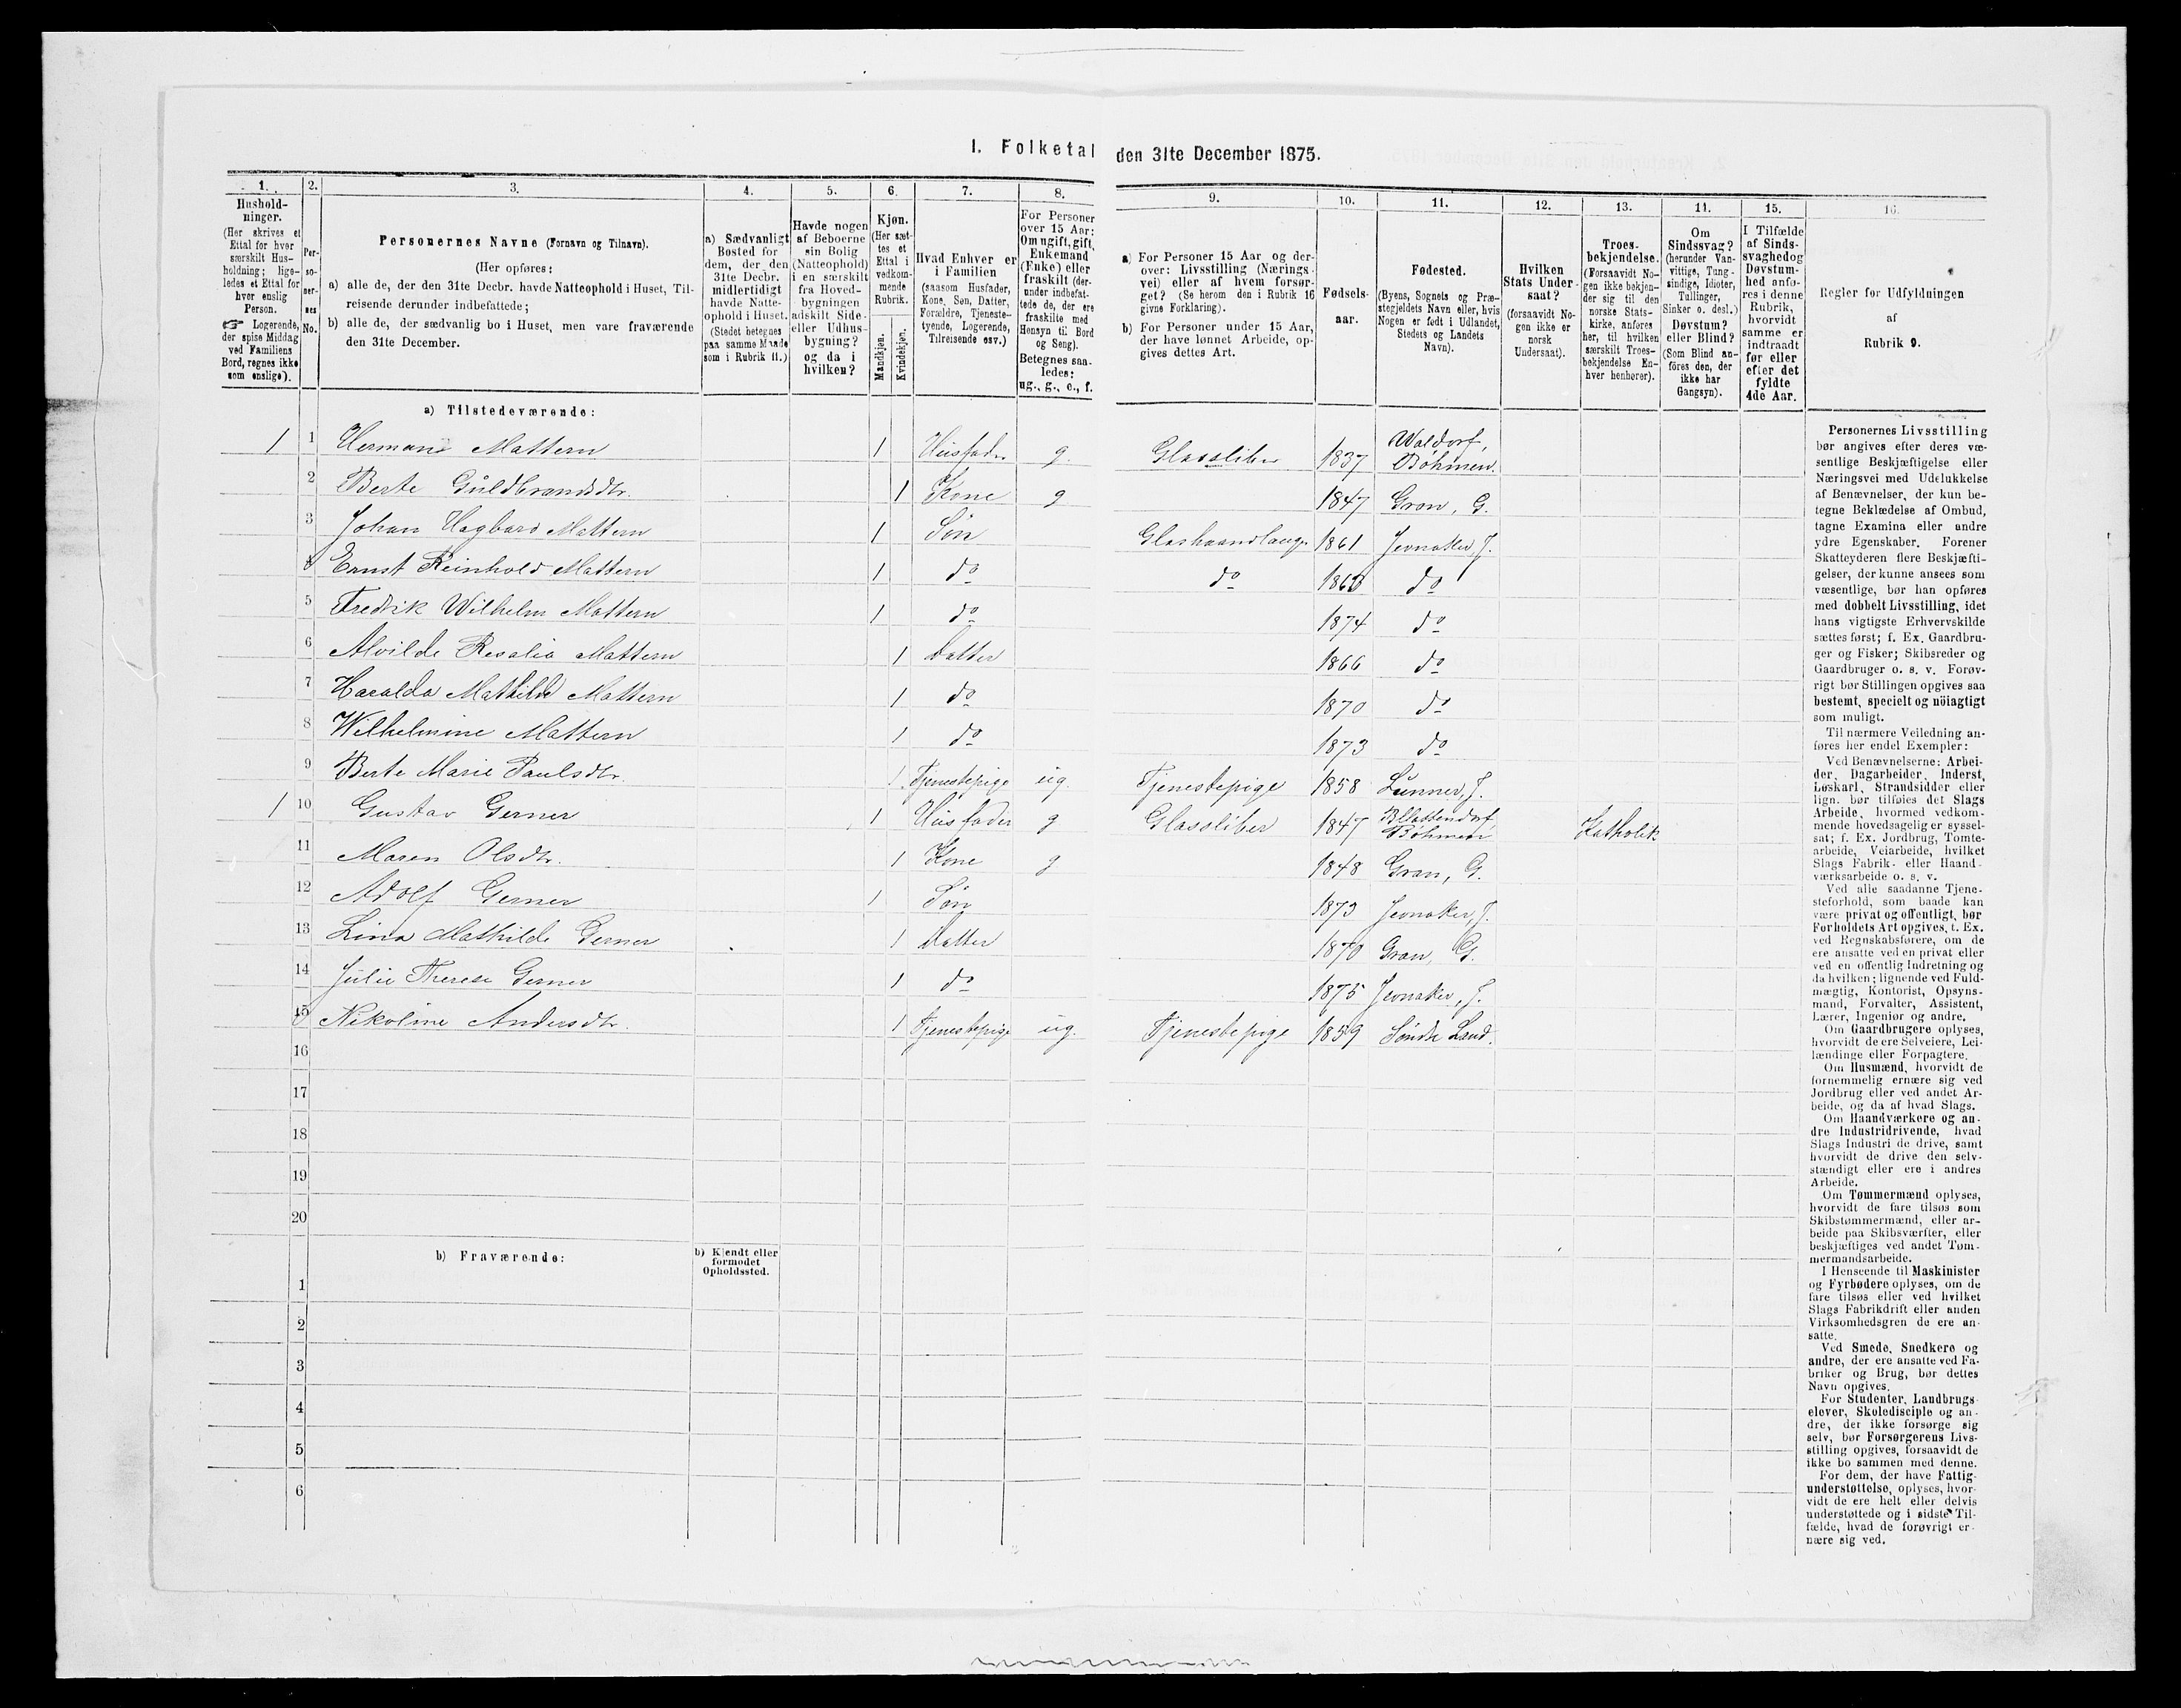 1. Folketal den 31te December 1875.
1. 2. 3. 4. 5. 6. 7. 8. 9. 10. 11. 12. 13. 14. 15. 16.
Hushold-
ninger.
(Her skrives et
Ettal for hver
særskilt Hus-
holdning; lige-
ledes et Ettal for
hver enslig
Person.
☞ Logerende,
der spise Middag
ved Familiens
Bord, regnes ikke
som enslige).
Per-
so-
ner-
nes
No.
Personernes Navne (Fornavn og Tilnavn).
(Her opføres:
a) alle de, der den 31te Decbr. havde Natteophold i Huset, Til-
reisende derunder indbefattede;
b) alle de, der sædvanlig bo i Huset, men vare fraværende
den 31te December.
a) Sædvanligt
Bosted for
dem, der den
31te Decbr.
midlertidigt
havde Natte-
ophold i Huset.
(Stedet betegnes
paa samme Maade
som i Rubrik 11.)
Havde nogen
af Beboerne
sin Bolig
(Natteophold)
i en særskilt
fra Hoved-
bygningen
adskilt Side-
eller Udhus-
bygning?
og da i
hvilken?
Kjøn.
(Her sæt-
tes et
Ettal i
vedkom-
mende
Rubrik.
Mandkjøn.
Kvindekjøn.
Hvad Enhver er
i Familien
(saasom Husfader,
Kone, Søn, Datter,
Forældre, Tjeneste-
tyende, Logerende,
Tilreisende osv.)
For Personer
over 15 Aar:
Om ugift, gift,
Enkemand
(Enke) eller
fraskilt (der-
under indbefat-
tede de, der ere
fraskilte med
Hensyn til Bord
og Seng).
Betegnes saa-
ledes:
ug., g., e., f.
a) For Personer 15 Aar og der-
over: Livsstilling (Nærings-
vei) eller af hvem forsør-
get? (Se herom den i Rubrik 16
givne Forklaring).
b) For Personer under 15 Aar,
der have lønnet Arbeide, op-
gives dettes Art.
Fødsels-
aar.
Fødested.
(Byens, Sognets og Præ-
stegjeldets Navn eller, hvis
Nogen er født i Udlandet,
Stedets og Landets
Navn).
Hvilken
Stats Under-
saat?
(forsaavidt No-
gen ikke er
norsk
Undersaat).
Troes-
bekjendelse.
(Forsaavidt No-
gen ikke bekjen-
der sig til den
norske Stats-
kirke, anføres
her, til hvilken
særskilt Troes-
bekjendelse En-
hver henhører).
Om
Sindssvag?
(herunder Van-
vittige, Tung-
sindige, Idioter,
Tullinger,
Sinker o. desl.)
Døvstum?
eller Blind?
(Som Blind an-
føres den, der
ikke har
Gangsyn).
I Tilfælde
af Sinds-
svaghed og
Døvstum-
hed anfø-
res i denne
Rubrik,
hvorvidt
samme er
indtraadt
før eller
efter det
fyldte
4de Aar.
Regler for Udfyldningen
af
Rubrik 9.
a) Tilstedeværende:
1 1 Hermann Mattern 1 Husfader g Glassliber 1837 Waldorf, Bøhmen.
2 Berte Guldbrandsdtr. 1 Kone g 1847 Gran, G.
3 Johan Hagbard Mattern 1 Søn Glashaandlanger 1861 Jevnaker, J.
4 Ernst Reinhold Mattern 1 do do 1863 do
5 Fredrik Wilhelm Mattern 1 do 1874 do
6 Alvilde Rosalia Mattern 1 Datter 1866 do
7 Haralda Mathilde Mattern 1 do 1870 do
8 Wilhelmine Mattern 1 do 1873 do
9 Berte Marie Paulsdtr. 1 Tjenestepige ug. Tjenestepige 1858 Lunner, J.
1 10 Gustav Gerner 1 Husfader g Glassliber 1847 Bllattendorf, Bøhmen Katholik
11 Maren Olsdtr. 1 Kone g 1848 Gran, G.
12 Adolf Gerner 1 Søn 1873 Jevnaker, J.
13 Lina Mathilde Gerner 1 Datter 1870 Gran, G.
14 Julie Therese Gerner 1 do 1875 Jevnaker, J.
15 Nikoline Andersdtr. 1 Tjenestepige ug. Tjenestepige 1859 Søndre Land.
16
17
18
19
20
b) Fraværende:
b) Kjendt eller
formodet
Opholdssted.
1
2
3
4
5
6
Personernes Livsstilling
bør angives efter deres væ-
sentlige Beskjæftigelse eller
Næringsvei med Udelukkelse
af Benævnelser, der kun be-
tegne Beklædelse af Ombud,
tagne Examina eller andre
ydre Egenskaber. Forener
Skatteyderen flere Beskjæfti-
gelser, der kunne ansees som
væsentlige, bør han opføres
med dobbelt Livsstilling, idet
hans vigtigste Erhvervskilde
sættes først; f. Ex. Gaardbru-
ger og Fisker; Skibsreder og
Gaardbruger o. s. v. Forøv-
rigt bør Stillingen opgives saa
bestemt, specielt og nöiagtigt
som muligt.
Til nærmere Veiledning an-
føres her endel Exempler:
Ved Benævnelserne: Arbei-
der, Dagarbeider, Inderst,
Løskarl, Strandsidder eller
lign. bør tilføies det Slags
Arbeide, hvormed vedkom-
mende hovedsagelig er syssel-
sat; f. Ex. Jordbrug, Tømte-
arbeide, Veiarbeide, hvilket
Slags Fabrik- eller Haand-
værksarbeide o. s. v.
Ved alle saadanne Tjene-
steforhold, som baade kan
være privat og offentligt, bør
Forholdets Art opgives, t. Ex.
ved Regnskabsførere, om de
ere ansatte ved en privat eller
ved en offentlig Indretning og
da hvilken; lignende ved Fuld-
mægtig, Kontorist, Opsyns-
mand, Forvalter, Assistent,
Lærer, Ingeniør og andre.
Om Gaardbrugere oplyses,
hvorvidt de ere Selveiere, Lei-
lændinge eller Forpagtere.
Om Husmænd, hvorvidt de
fornemmelig ernære sig ved
Jordbrug eller ved andet Ar-
beide, og da af hvad Slags.
Om Haandværkere og an-
dre Industridrivende, hvad
Slags Industri de drive, samt
hvorvidt de drive den selv-
stændigt eller ere i andres
Arbeide.
Om Tømmermænd oplyses,
hvorvidt de fare tilsøs som
Skibstømmermænd, eller ar-
beide paa Skibsværfter, eller
beskjæftiges ved andet Tøm-
mermandsarbeide.
I Henseende til Maskinister
og Fyrbødere oplyses, om de
fare tilsøs eller ved hvilket
Slags Fabrikdrift eller anden
Virksomhedsgren de ere an-
satte.
Ved Smede, Snedkere og
andre, der ere ansatte ved Fa-
briker og Brug, bør dettes
Navn opgives.
For Studenter, Landbrugs-
elever, Skoledisciple og an-
dre, der ikke forsørge sig
selv, bør Forsørgerens Livs-
stilling opgives, forsaavidt de
ikke bo sammen med denne.
For dem, der have Fattig-
understøttelse, oplyses, hvor-
vidt de ere helt eller delvis
understøttede og i sidste Til-
fælde, hvad de forøvrigt er-
nære sig ved.